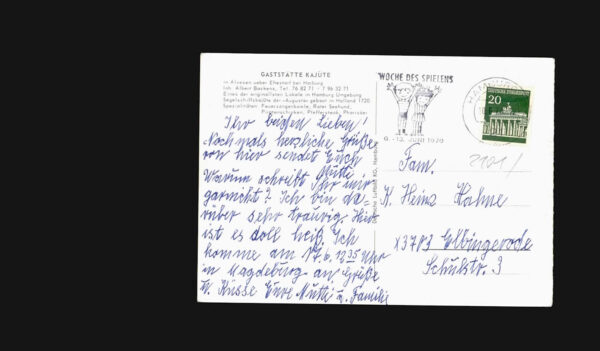 GASTSTÄTTE KAJÜTE
in Alvesen ueber Ehestorf bei Harburg
Inh. Albert Backens, Tel. 76 82 71 - 7 96 32 71
Eines der originellsten Lokale in Hamburg Umgebung
Segelschiffskajüte der »Auguste« gebaut in Holland 1720
Spezialitäten: Feuerzangenbowle, Roter Seehund,
Piratenschinken, Pfeffersteak, Pharisäer
Ihr beiden Lieben!
Nochmals herzliche Grüße
von hier sendet Euch
Mutti
Warum schreibt Ihr mir
garnicht? Ich bin da-
rüber sehr traurig. Hier
ist es doll heiß. Ich
komme am 17.6. 12.35 Uhr
in Magdeburg an. Grüße
u. Küsse Eure Mutti u. Familie
WOCHE DES SPIELENS
6.-13. JUNI 1970
HAMBURG
DEUTSCHE BUNDESPOST
20
2101/
Fam.
K. Heinz Hahne
X3703 Elbingerode
Schulstr. 3